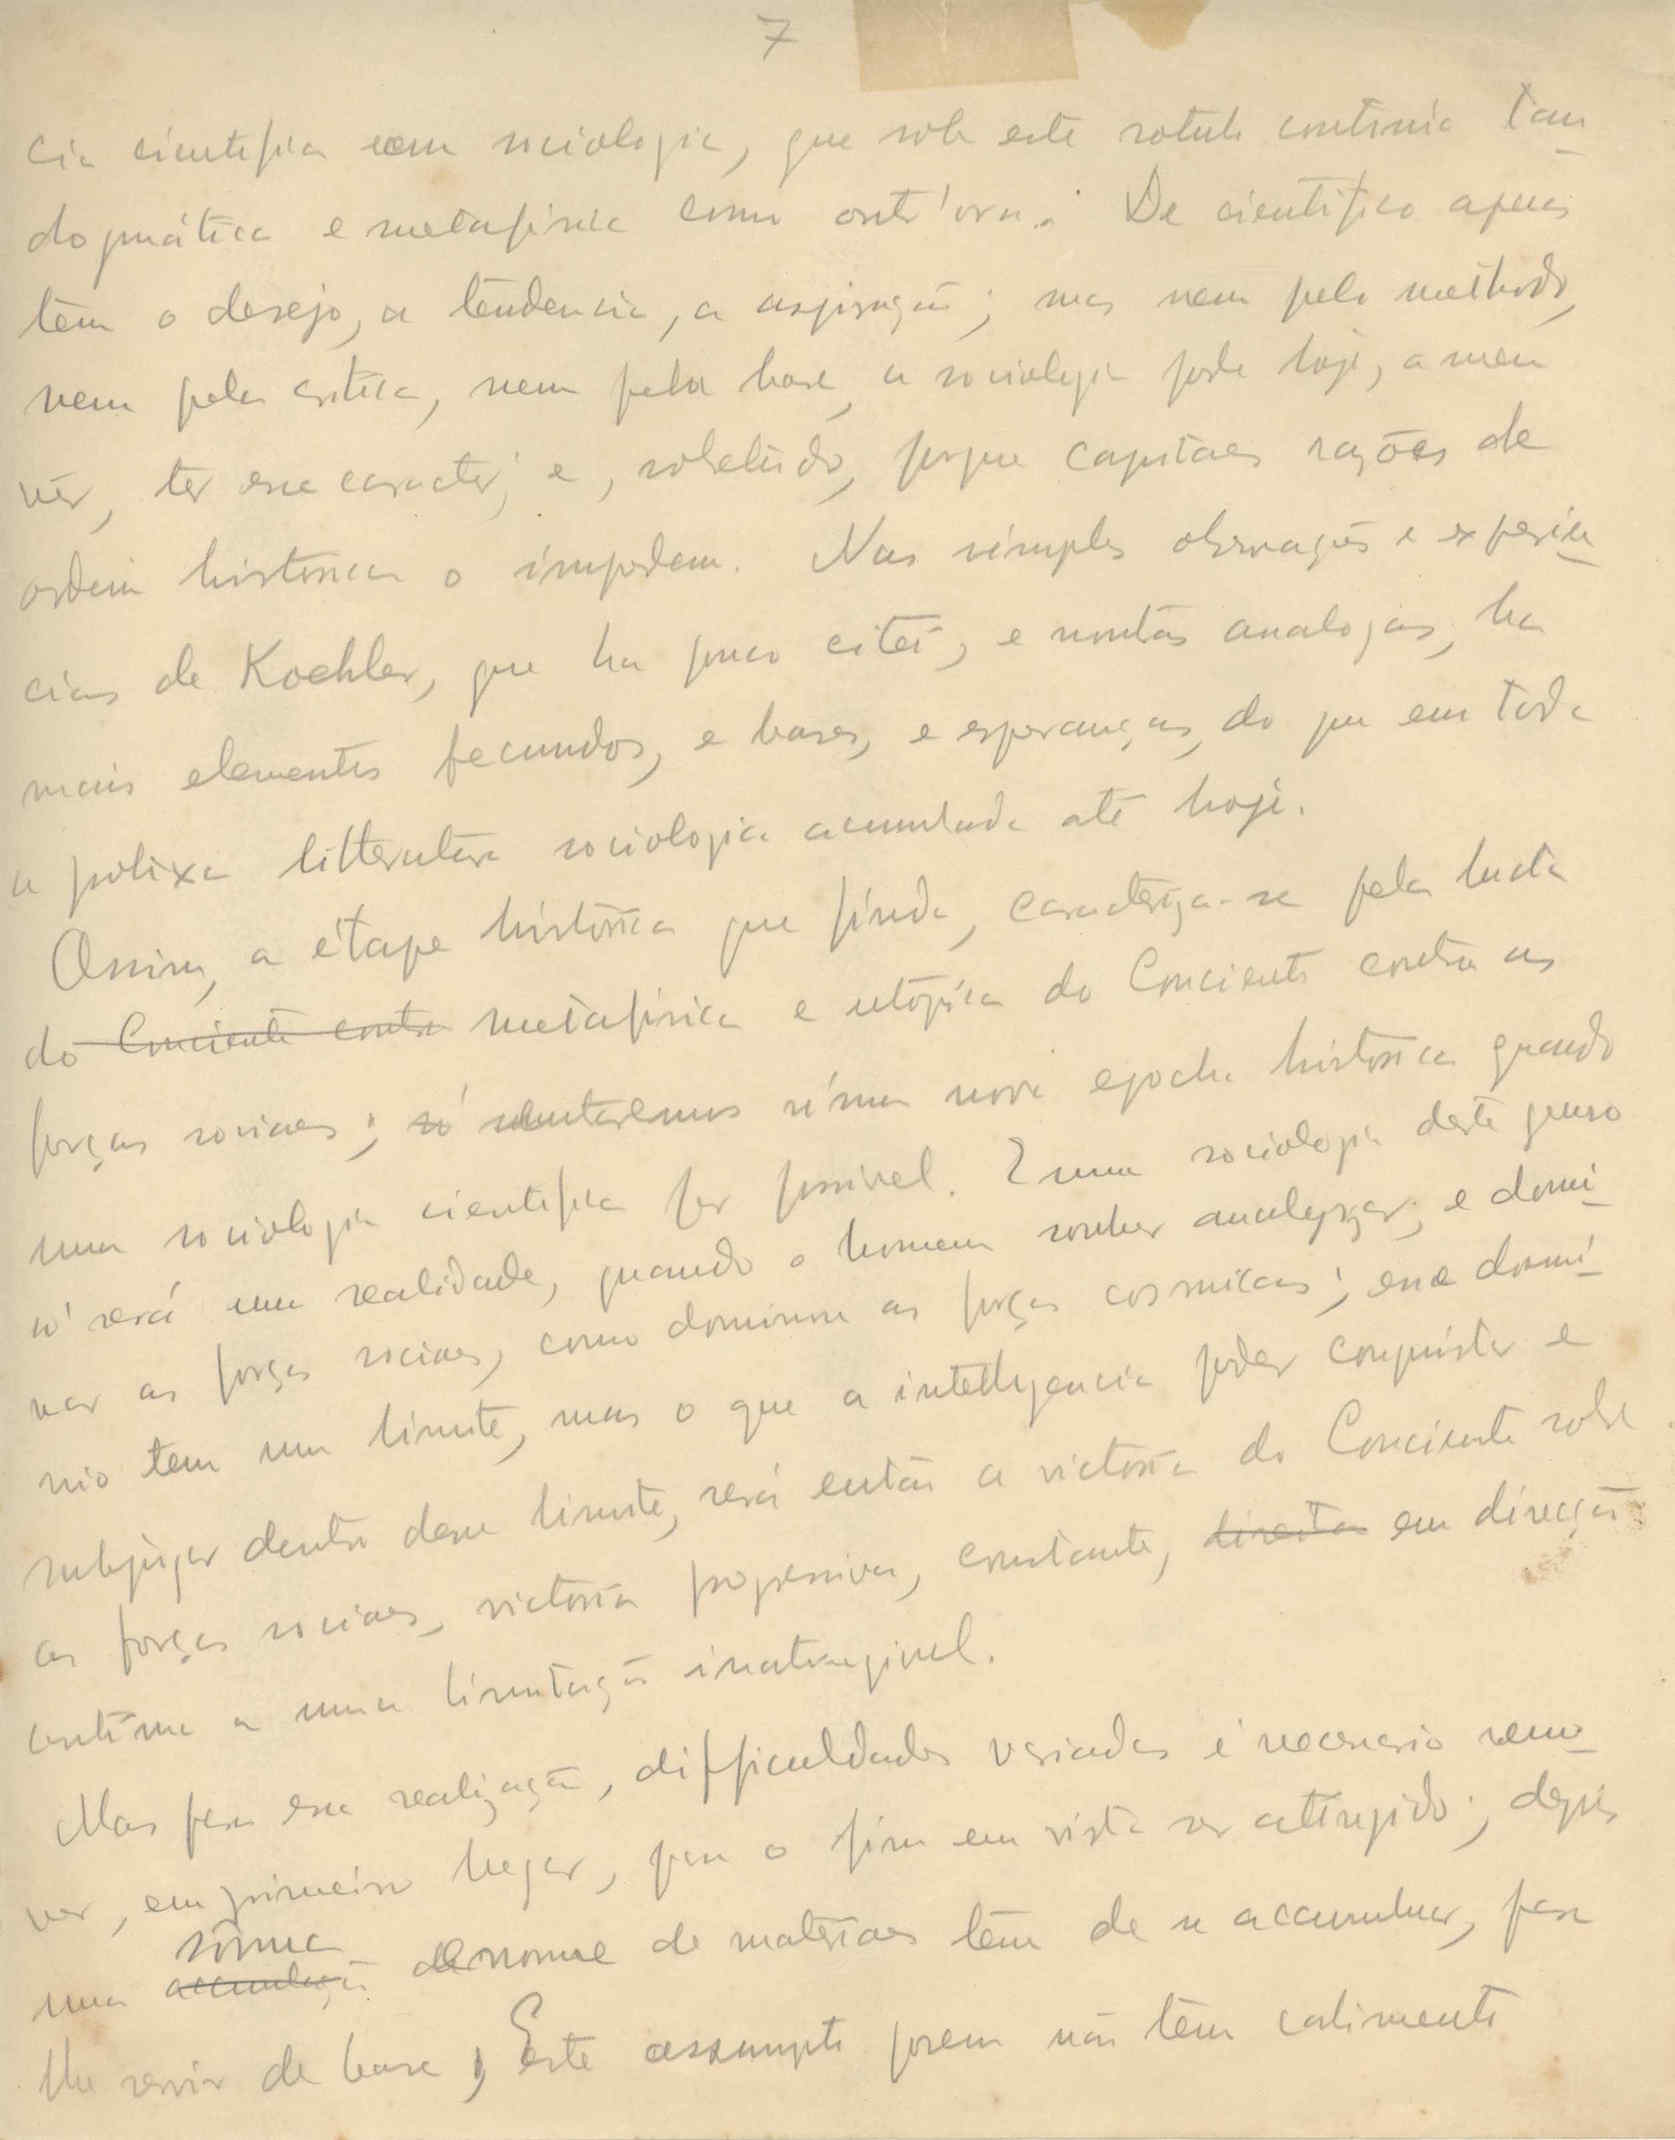 7
cia cientifica em sociologia, que sob este rotulo continúa tam
dogmática e metafisica como outr'ora. De cientifico apenas
têm o desejo, a tendencia, a aspiração; mas nem pelo methodo,
nem pela critica, nem pela base, a sociologia pode hoje, a meu
vêr, ter esse caracter; e, sobretudo, porque capitaes razões de
ordem historica o impedem. Nas simples observações e experien
cias de Koehler, que ha pouco citei, e noutras analogas, ha
mais elementos fecundos, e bases, e esperanças, do que em toda
a prolixa litteratura sociologica acumulada até hoje.
Assim, a étape historica que finda, caracteriza-se pela lucta
do Conciente contra metafisica e utópica do Conciente contra as
forças sociaes; só entraremos n'uma nova epocha historica quando
uma sociologia cientifica fôr possivel. E uma sociologia deste genero
só será uma realidade, quando o homem souber analyzar, e domi
nar as forças sociaes, como dominou as forças cosmicas; esse domi
nio tem um limite, mas o que a intelligencia poder conquistar e
subjugar dentro desse limite, será então a victoria do Conciente sobre
as forças sociaes, victoria progressiva, constante, directa em direcção
contínua a uma limitação inatingivel.
Mas para essa realização, difficuldades variadas é necessario remo
ver, em primeiro lugar, para o fim em vista ser attingido; depois
sômma
uma accumulação enorme de materiaes têm de se accumular, para
lhe servir de base; Este assumpto porem não têm cabimento